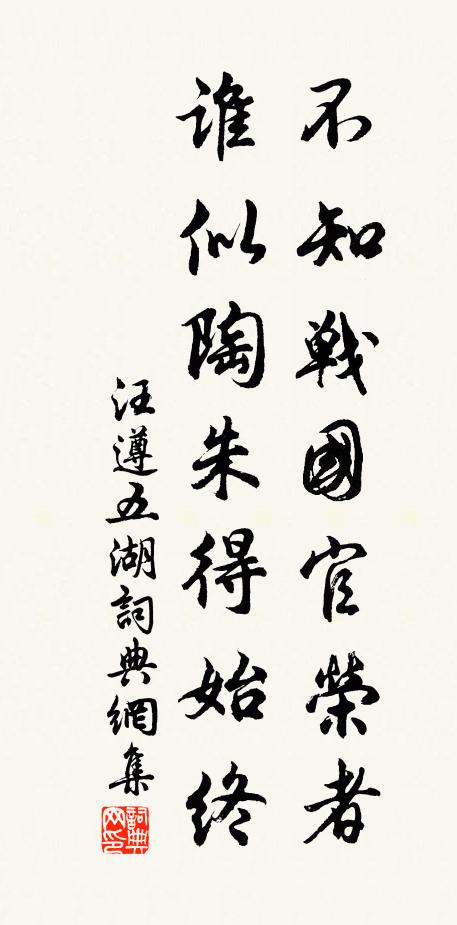 不知戰國官榮者
誰似陶朱得始終
汪遵五湖詞典網集
詞典网印